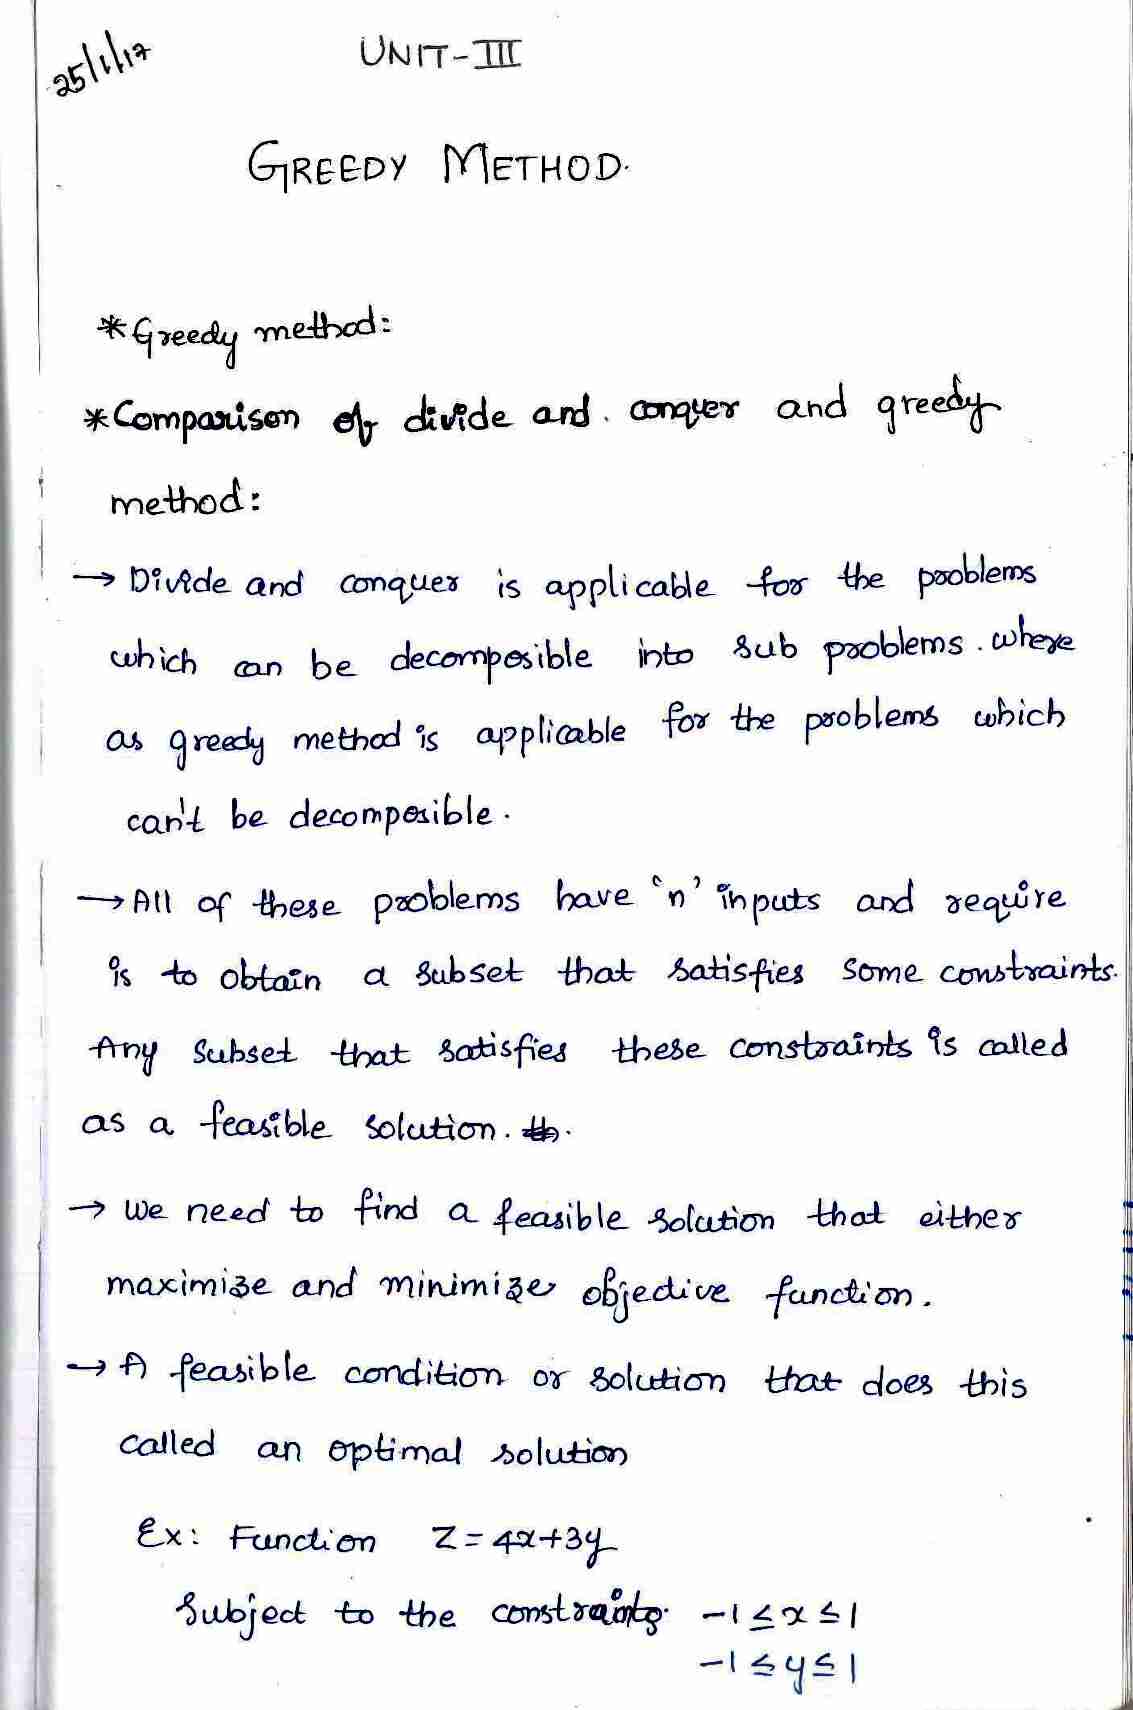 25/1/17
UNIT-III
GREEDY METHOD.
*Greedy method:
*Comparison of divide and conquer and greedy
method:
→ Divide and conquer is applicable for the problems
which can be decomposible into sub problems. where
as greedy method is applicable for the problems which
can't be decomposible.
→ All of these problems have 'n' inputs and require
is to obtain a subset that satisfies some constraints.
Any subset that satisfies these constraints is called
as a feasible solution.
→ We need to find a feasible solution that either
maximize and minimize objective function.
→ A feasible condition or solution that does this
called an optimal solution
Ex: Function Z = 4x+3y
Subject to the constraints -1 ≤ x ≤ 1
-1 ≤ y ≤ 1